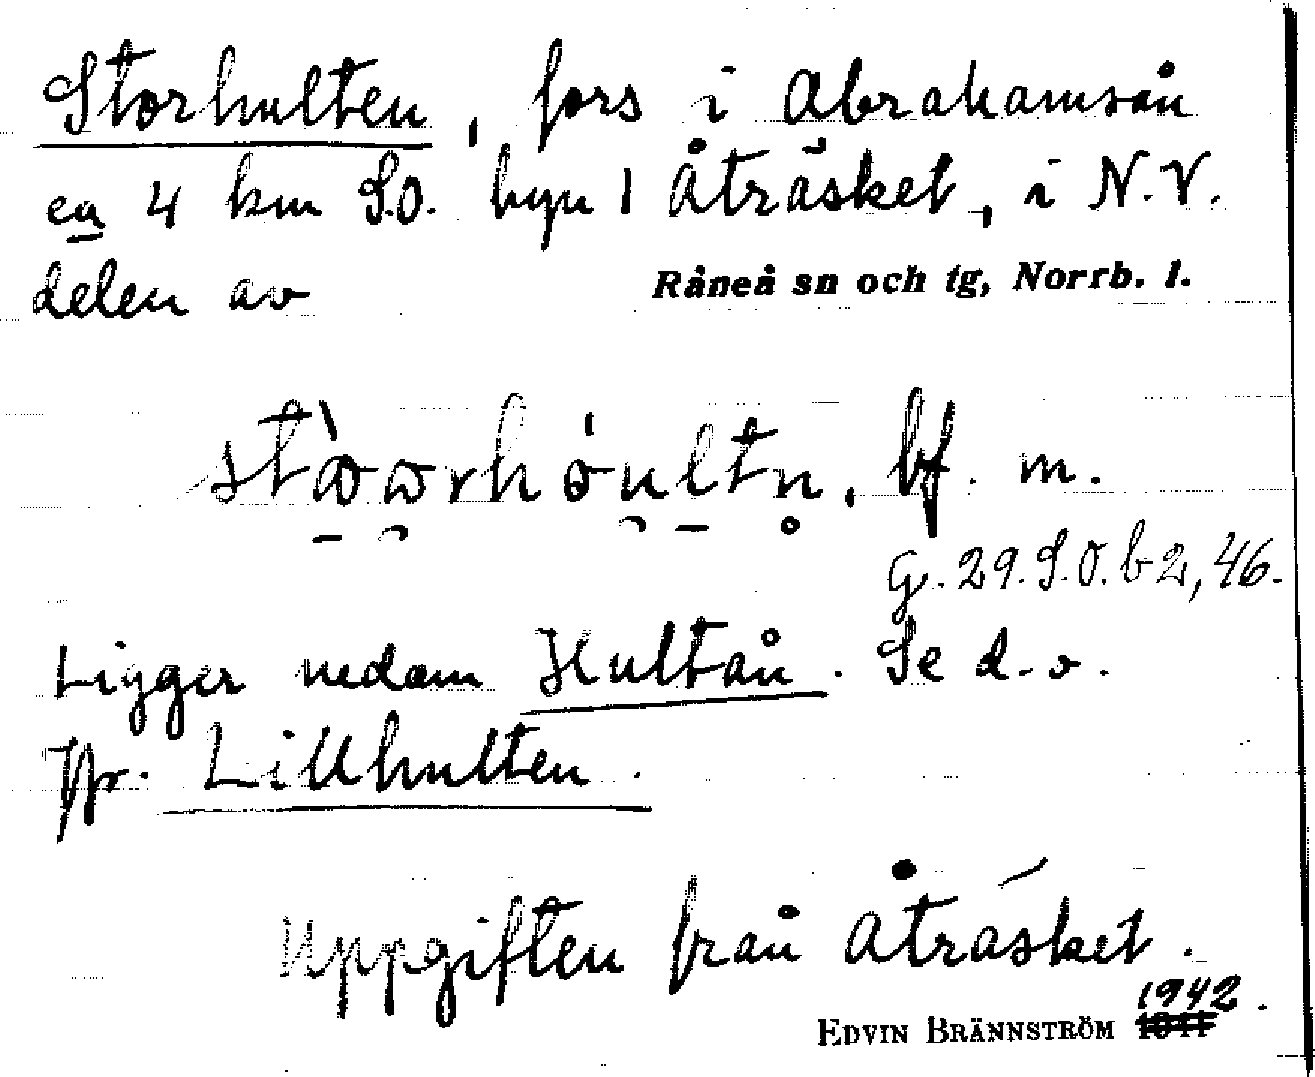 Storhulten, fors i Abrahamsån
ca 4 km S.O. byn 1 Åträsket, i N.V.
delen av Råneå sn och tg, Norrb. l.
bf. m.
G. 29. S.O. b 2, 46.
Ligger nedom Hultån. Se d.o.
Jfr. Lillhulten.
Uppgiften från Åträsket.
1942.
EDVIN BRÄNNSTRÖM 1941